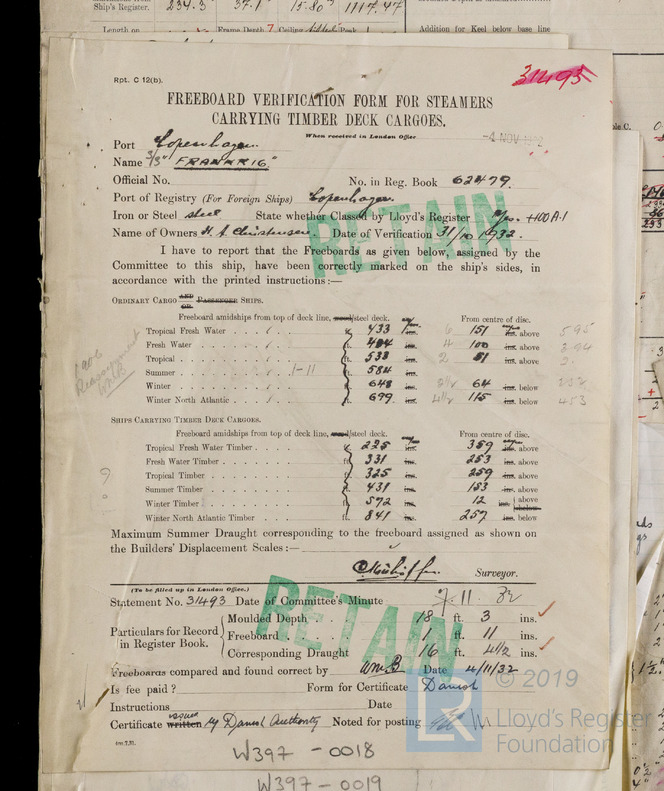 Ship's Register. 234.3 37.1 15.80 1117.47
Length on Frame Depth 7 Ceiling Addition for Keel below base line
Rpt. C 12(b).
31493
FREEBOARD VERIFICATION FORM FOR STEAMERS
CARRYING TIMBER DECK CARGOES.
When received in London Office -4 NOV 1932
Port Copenhagen.
Name S/S "FRANKRIG"
Official No. No. in Reg. Book 62479.
Port of Registry (For Foreign Ships) Copenhagen.
Iron or Steel steel State whether Classed by Lloyd's Register +100A.1
Name of Owners H. A Christensen. Date of Verification 31/10 1932.
RETAIN
I have to report that the Freeboards as given below, assigned by the
Committee to this ship, have been correctly marked on the ship's sides, in
accordance with the printed instructions:—
ORDINARY CARGO AND OR PASSENGER SHIPS.
Freeboard amidships from top of deck line, wood/steel deck. From centre of disc.
Tropical Fresh Water ft. 433 ins. 6 151 ins. above 595
Fresh Water ft. 484 ins. 4 100 ins. above 394
Tropical ft. 533 ins. 2 51 ins. above 2.
Summer 1-11 ft. 584 ins.
Winter ft. 648 ins. 2½ 64 ins. below
Winter North Atlantic ft. 699. ins. 4½ 115 ins. below 453
SHIPS CARRYING TIMBER DECK CARGOES.
Freeboard amidships from top of deck line, wood/steel deck. From centre of disc.
Tropical Fresh Water Timber ft. 225 ins. 359 ins. above
Fresh Water Timber ft. 331 ins. 253 ins. above
Tropical Timber ft. 325 ins. 259 ins. above
Summer Timber ft. 431 ins. 153 ins. above
Winter Timber ft. 572 ins. 12 ins. above below
Winter North Atlantic Timber ft. 841 ins. 257 ins. below
Maximum Summer Draught corresponding to the freeboard assigned as shown on
the Builders' Displacement Scales:—
Surveyor.
(To be filled up in London Office.)
Statement No. 31493 Date of Committee's Minute 7. 11. 32
RETAIN
Particulars for Record in Register Book.
Moulded Depth 18 ft. 3 ins.
Freeboard 1 ft. 11 ins.
Corresponding Draught 16 ft. 4½ ins.
Freeboards compared and found correct by WmB Date 4/11/32
Is fee paid? Form for Certificate Danish
Instructions Date
Certificate written issued by Danish Authority Noted for posting
W397 - 0018
W397 - 0019
© 2019
LR
Lloyd's Register
Foundation